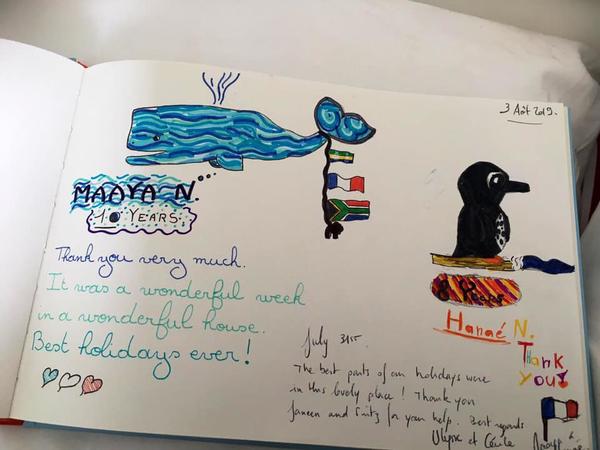 3 Août 2019.
MAAYA N.
10 YEARS
Thank you very much.
It was a wonderful week
in a wonderful house.
Best holidays ever!
8 Years
Hanaé N.
Thank
you!
July 31st
The best parts of our holidays were
in this lovely place ! Thank you
Janeen and for your help. Best regards
Ulysse et Cécile